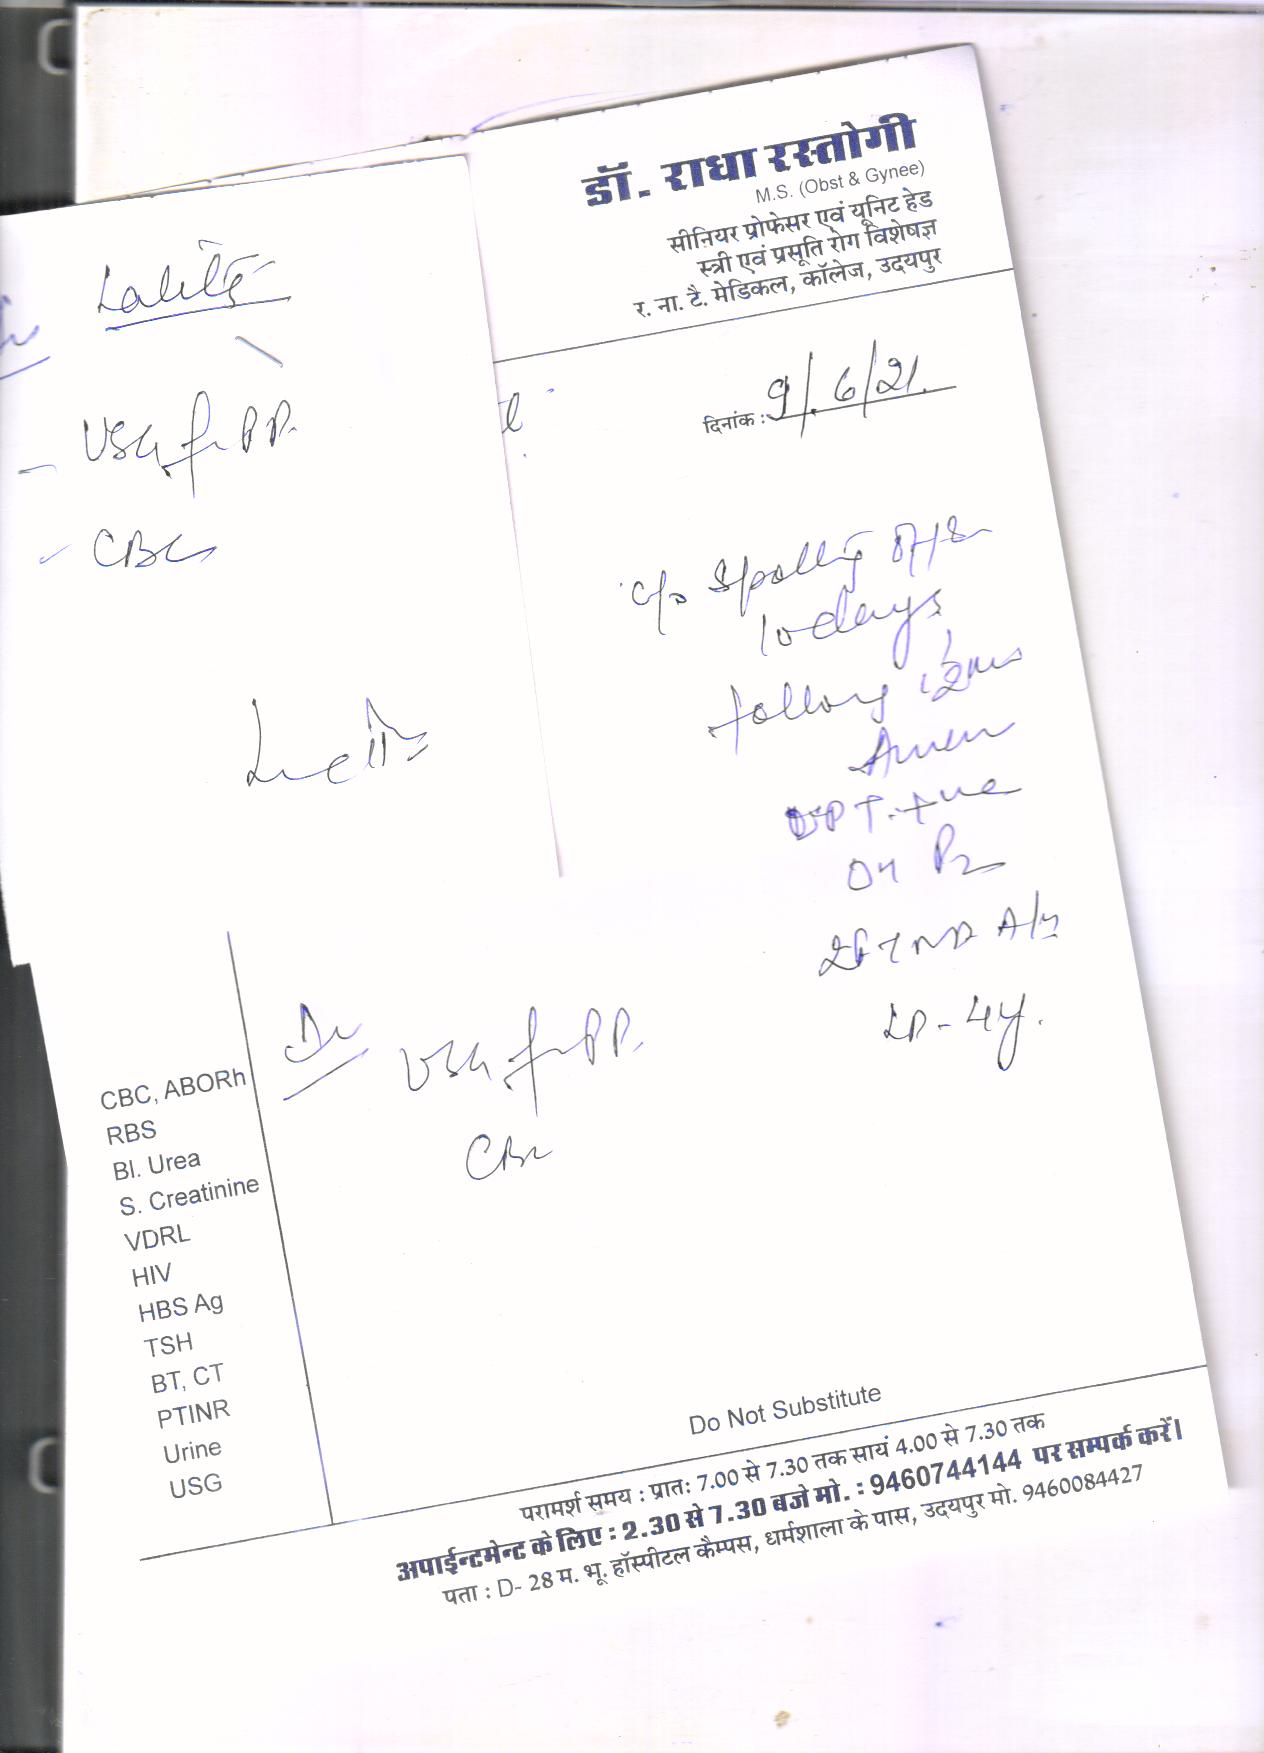 डॉ. राधा रस्तोगी
M.S. (Obst & Gynee)
सीनियर प्रोफेसर एवं यूनिट हेड
स्त्री एवं प्रसूति रोग विशेषज्ञ
र. ना. टै. मेडिकल, कॉलेज, उदयपुर
दिनांक : 9/6/21
USG for PP.
CBC
c/o Spotting
10 days
following
UPT +ve
O/H P2
LD - 4y.
USG for PP.
CBC
CBC, ABORh
RBS
Bl. Urea
S. Creatinine
VDRL
HIV
HBS Ag
TSH
BT, CT
PTINR
Urine
USG
Do Not Substitute
परामर्श समय : प्रातः 7.00 से 7.30 तक सायं 4.00 से 7.30 तक
अपाईन्टमेन्ट के लिए : 2.30 से 7.30 बजे मो. : 9460744144 पर सम्पर्क करें।
पता : D- 28 म. भू. हॉस्पीटल कैम्पस, धर्मशाला के पास, उदयपुर मो. 9460084427